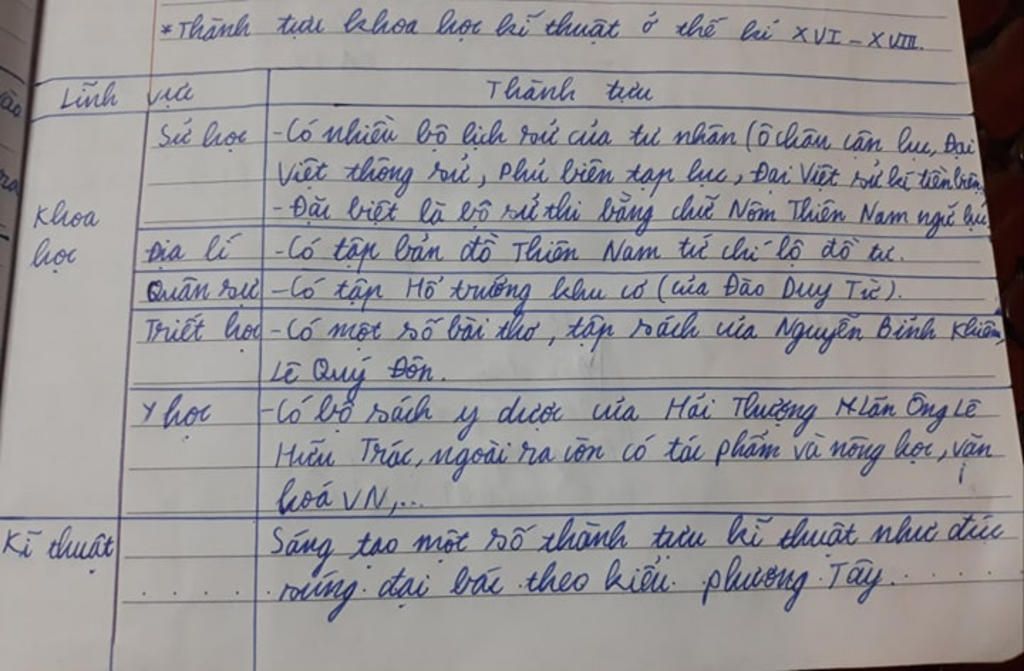 *Thành tựu khoa học kĩ thuật ở thế kỉ XVI – XVIII.
Lĩnh vực Thành tựu
Sử học - Có nhiều bộ lịch sử của tư nhân (Ô châu cận lục, Đại
Việt thông sử, Phủ biên tạp lục, Đại Việt sử kí tiền biên,
Khoa - Đặc biệt là bộ sử thi bằng chữ Nôm Thiên Nam ngữ lục
học Địa lí - Có tập bản đồ Thiên Nam tứ chí lộ đồ tư.
Quân sự - Có tập Hổ trướng khu cơ (của Đào Duy Từ).
Triết học - Có một số bài thơ, tập sách của Nguyễn Bỉnh Khiêm,
Lê Quý Đôn.
Y học - Có bộ sách y dược của Hải Thượng Lãn Ông Lê
Hữu Trác, ngoài ra còn có tác phẩm và nông học, văn
hoá VN,...
Kĩ thuật Sáng tạo một số thành tựu kĩ thuật như đúc
súng đại bác theo kiểu phương Tây